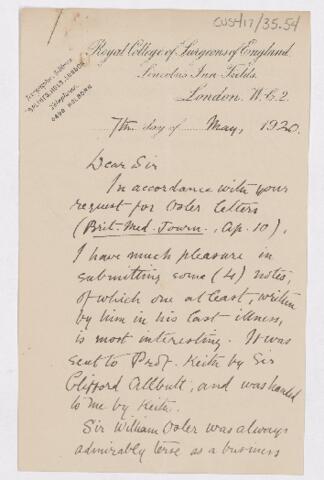 CUS417/35.54
Royal College of Surgeons of England.
Lincolns Inn Fields.
London. W.C.2.
Telegraphic Address
Telephone
HOLBORN
7th day of May, 1920
Dear Sir
In accordance with your
request for Osler letters
(Brit. Med. Journ., Ap. 10),
I have much pleasure in
submitting some (4) notes,
of which one at least, written
by him in his last illness,
is most interesting. It was
sent to Prof. Keith by Sir
Clifford Allbutt, and was handed
to me by Keith.
Sir William Osler was always
admirably terse as a business